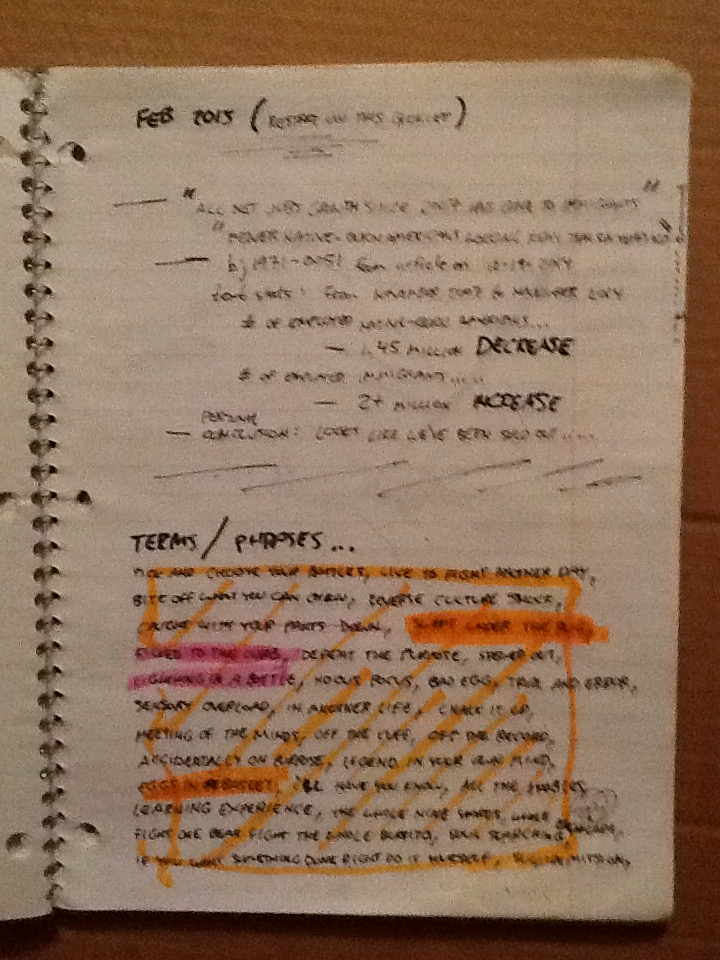 FEB 2015 (RESTART ON THIS BOOKLET)
"ALL NET JOBS GROWTH SINCE 2007 HAS GONE TO IMMIGRANTS"
"FEWER NATIVE-BORN AMERICANS WORKING NOW THAN
from article on 12-19-2014
FROM NOVEMBER 2007 to NOVEMBER 2014
# OF EMPLOYED NATIVE-BORN AMERICANS...
— 1.45 MILLION DECREASE
# OF EMPLOYED IMMIGRANTS.....
— 2+ MILLION INCREASE
— CONCLUSION: LOOKS LIKE WE'VE BEEN SOLD OUT.....
TERMS/ PHRASES...
PICK AND CHOOSE YOUR BATTLES, LIVE TO FIGHT ANOTHER DAY,
BITE OFF WHAT YOU CAN CHEW, REVERSE CULTURE SHOCK,
CAUGHT WITH YOUR PANTS DOWN, SWEPT UNDER THE RUG,
TO THE CURB, DEFEAT THE PURPOSE, OUT,
LIGHTNING IN A BOTTLE, HOCUS POCUS, BAD EGG, TRIAL AND ERROR,
SENSORY OVERLOAD, IN ANOTHER LIFE, CHALK IT UP,
MEETING OF THE MINDS, OFF THE CUFF, OFF THE RECORD,
ACCIDENTALLY ON PURPOSE, LEGEND IN YOUR OWN MIND,
EGGS IN BASKET, I'LL HAVE YOU KNOW, ALL THE MARBLES,
LEARNING EXPERIENCE, THE WHOLE NINE YARDS,
FIGHT ONE BEAR FIGHT THE WHOLE BURRITO, SOUL SEARCHING
IF YOU WANT SOMETHING DONE RIGHT DO IT YOURSELF, MISSION,